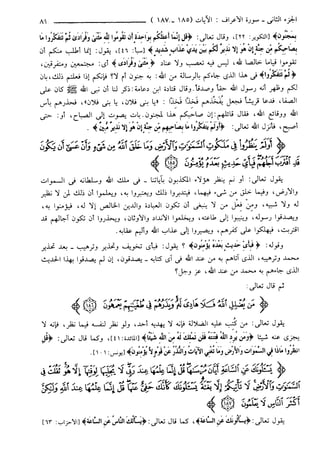 الجزء الثاني - سورة الأعراف: الآيات (١٨٥ - ١٨٧) ٨١
بمجنون﴾ [التكوير: ٢٢]، وقال تعالى: ﴿قل إنما أعظكم بواحدة أن تقوموا لله مثنى وفرادى ثم تتفكروا ما
بصاحبكم من جنة إن هو إلا نذير لكم بين يدي عذاب شديد﴾ [سبأ: ٤٦]، يقول: إنما أطلب منكم أن
تقوموا قياما خالصا لله، ليس فيه تعصب ولا عناد ﴿مثنى وفرادى﴾ أي: مجتمعين ومتفرقين،
﴿ثم تتفكروا﴾ في هذا الذي جاءكم بالرسالة من الله: به جنون أم لا؟ فإنكم إذا فعلتم ذلك، بان
لكم وظهر أنه رسول الله حقاً وصدقاً. وقال قتادة ابن دعامة: ذكر لنا أن نبي الله ﷺ كان على
الصفا، فدعا قريشاً فجعل يُفَخِّذهم فَخِذاً فَخِذاً: «يا بني فلان، يا بني فلان»، فحذرهم بأس
الله ووقائع الله، فقال قائلهم: إن صاحبكم هذا لمجنون. بات يصوت إلى الصباح، أو: حتى
أصبح، فأنزل الله تعالى: ﴿أولم يتفكروا ما بصاحبهم من جنة إن هو إلا نذير مبين﴾.
﴿أولم ينظروا في ملكوت السماوات والأرض وما خلق الله من شيء وأن عسى أن يكون
قد اقترب أجلهم فبأي حديث بعده يؤمنون ۝﴾
يقول تعالى: أو لم ينظر هؤلاء المكذبون بآياتنا - في ملك الله وسلطانه في السموات
والأرض، وفيما خلق من شيء فيهما، فيتدبروا ذلك ويعتبروا به، ويعلموا أن ذلك لمن لا نظير
له ولا شبيه، ومن فعل من لا ينبغي أن تكون العبادة والدين الخالص إلا له، فيؤمنوا به،
ويصدقوا رسوله، وينيبوا إلى طاعته، ويخلعوا الأنداد والأوثان، ويحذروا أن تكون آجالهم قد
اقتربت، فيهلكوا على كفرهم، ويصيروا إلى عذاب الله وأليم عقابه.
وقوله: ﴿فبأي حديث بعده يؤمنون﴾؟ يقول: فبأي تخويف وتحذير وترهيب - بعد تحذير
محمد وترهيبه، الذي أتاهم به من عند الله في آي كتابه - يصدقون، إن لم يصدقوا بهذا الحديث
الذي جاءهم به محمد من عند الله، عز وجل؟
ثم قال تعالى:
﴿من يضلل الله فلا هادي له ويذرهم في طغيانهم يعمهون ۝﴾
يقول تعالى: من كُتِب عليه الضلالة فإنه لا يهديه أحد، ولو نظر لنفسه فيما نظر، فإنه لا
يجزى عنه شيئا ﴿ومن يرد الله فتنته فلن تملك له من الله شيئا﴾ [المائدة: ٤١]، وكما قال تعالى: ﴿قل
انظروا ماذا في السماوات والأرض وما تغني الآيات والنذر عن قوم لا يؤمنون﴾ [يونس: ١٠١].
﴿يسألونك عن الساعة أيان مرساها قل إنما علمها عند ربي لا يجليها لوقتها إلا هو ثقلت في
السماوات والأرض لا تأتيكم إلا بغتة يسألونك كأنك حفي عنها قل إنما علمها عند الله ولكن
أكثر الناس لا يعلمون ۝﴾
يقول تعالى: ﴿يسألونك عن الساعة﴾، كما قال تعالى: ﴿يسألك الناس عن الساعة﴾ [الأحزاب: ٦٣]